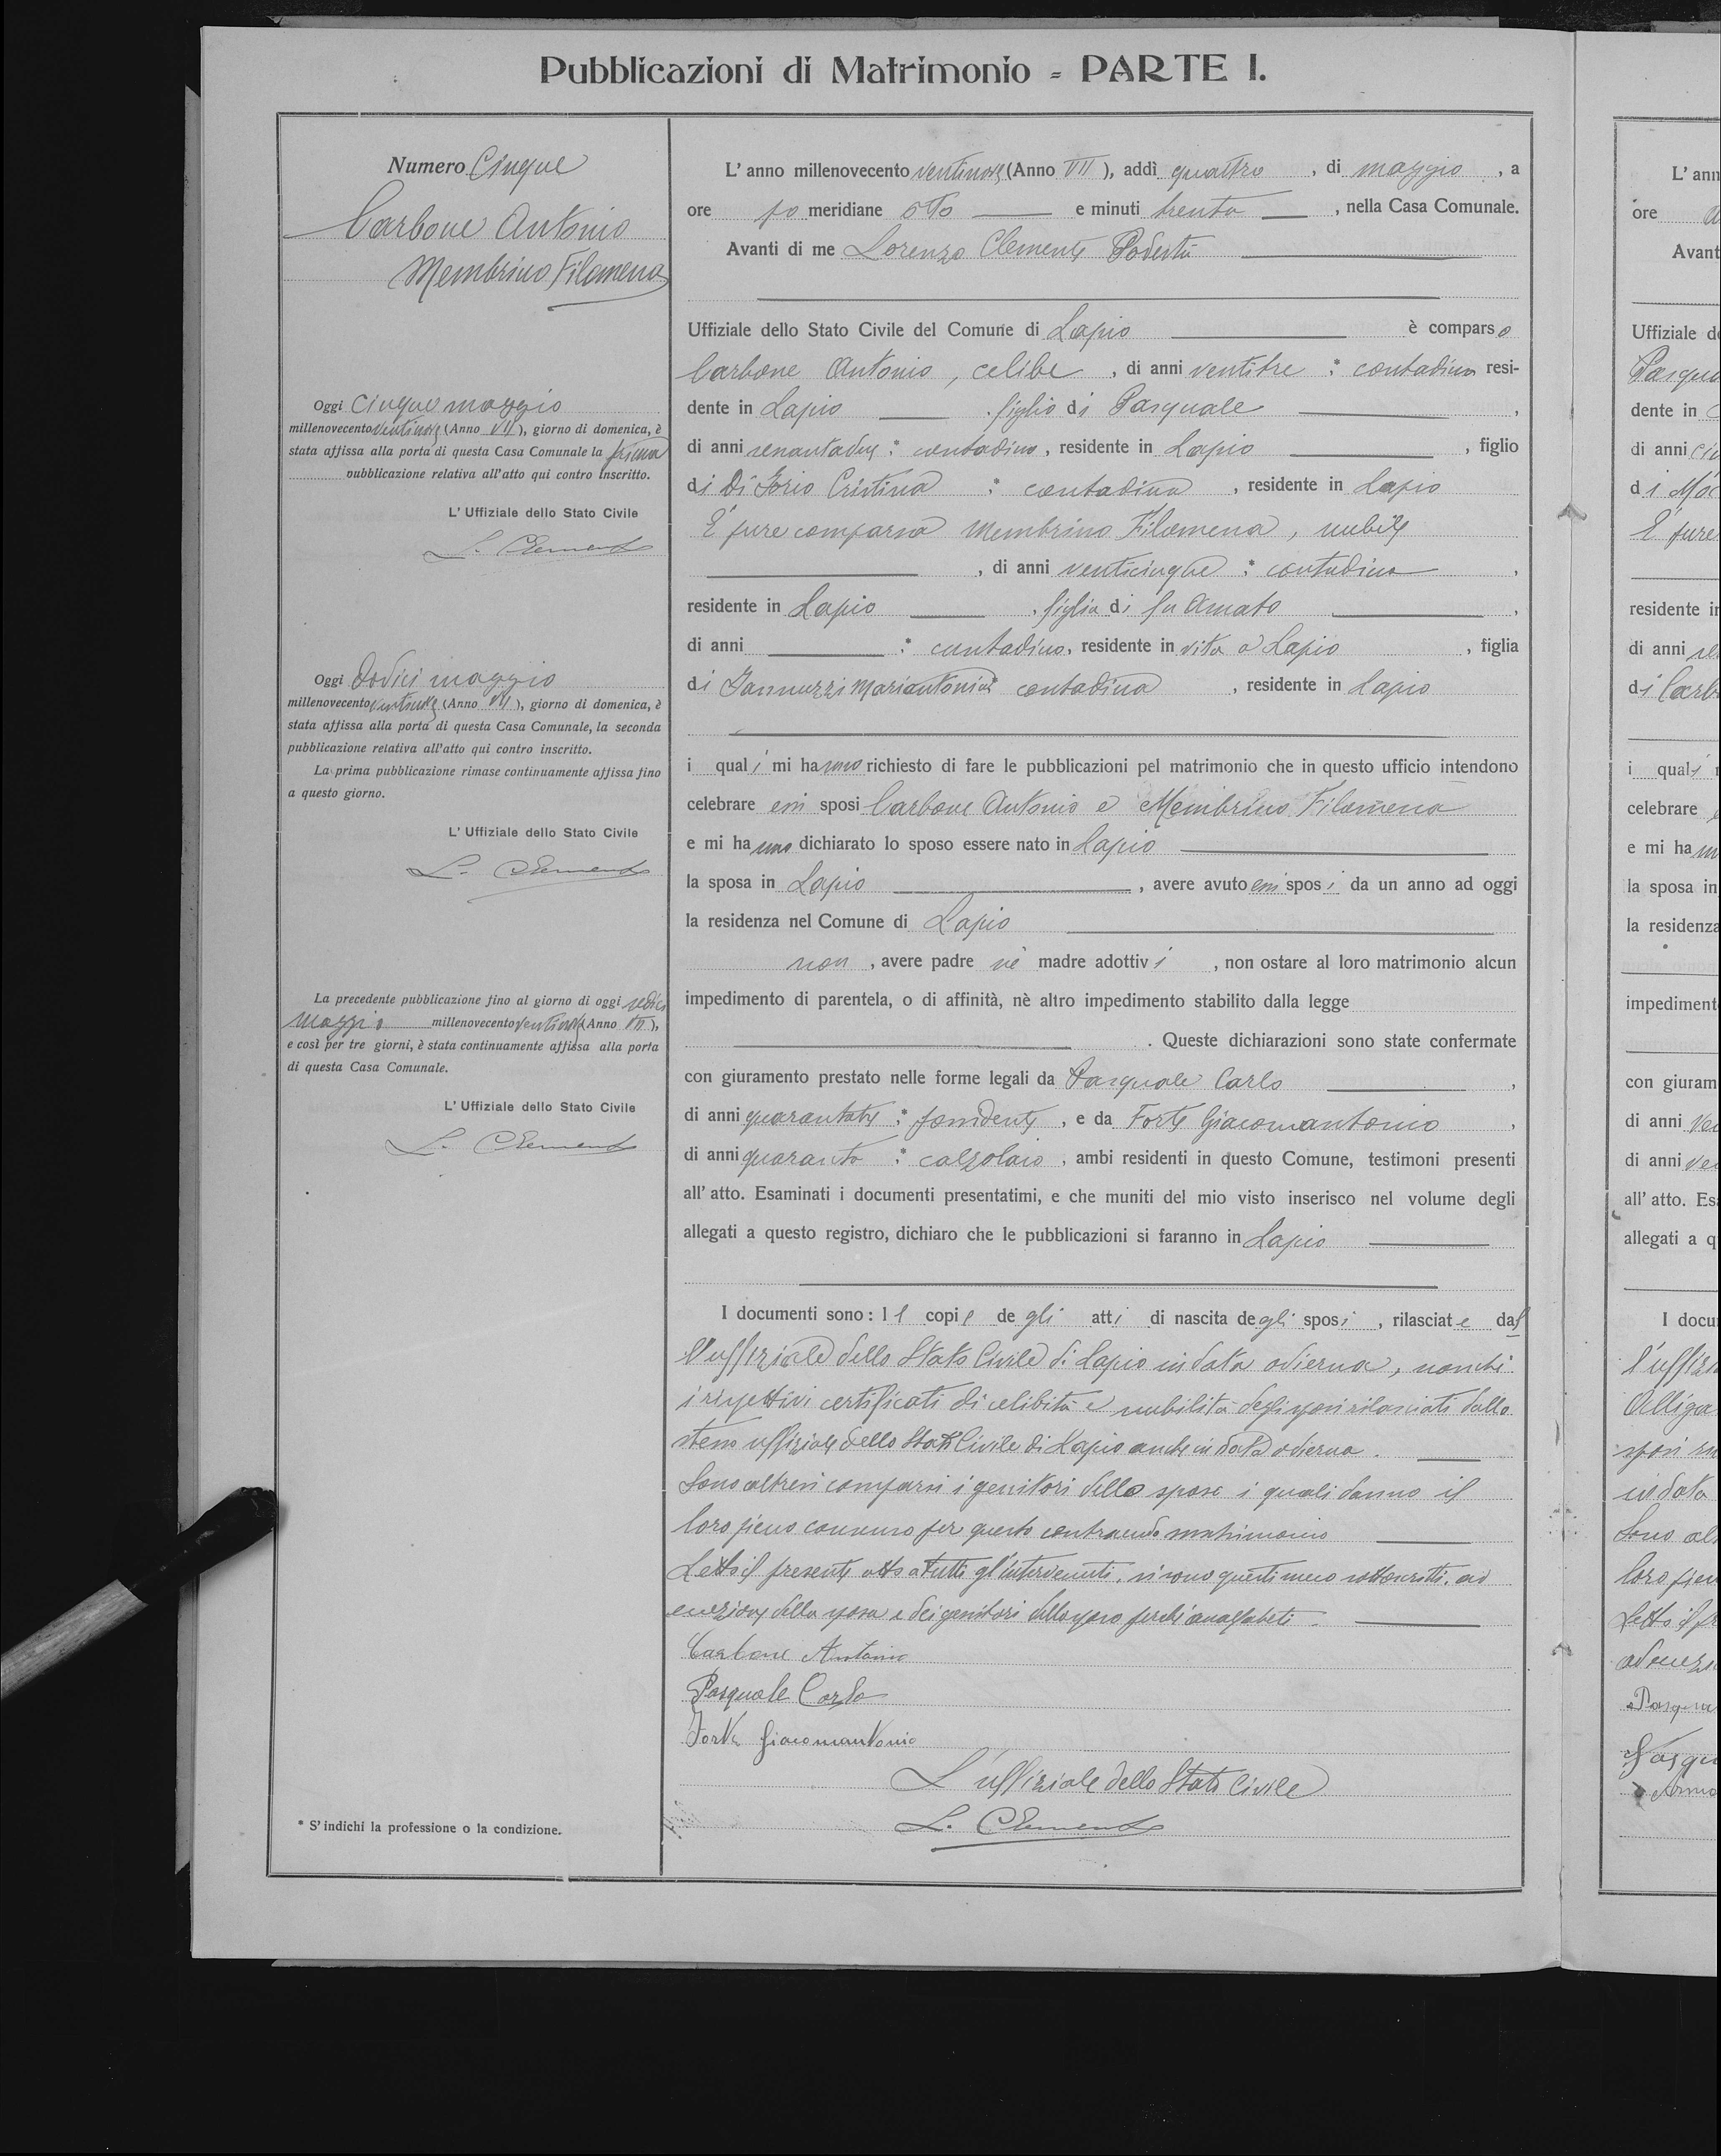 Pubblicazioni di Matrimonio = PARTE I.
Numero Cinque
Carbone Antonio
Membrino Filomena
Oggi Cinque maggio
millenovecento ventinove (Anno VII), giorno di domenica, è
stata affissa alla porta di questa Casa Comunale la prima
pubblicazione relativa all'atto qui contro inscritto.
L'Uffiziale dello Stato Civile
L. Clemente
Oggi dodici maggio
millenovecento ventinove (Anno VII), giorno di domenica, è
stata affissa alla porta di questa Casa Comunale, la seconda
pubblicazione relativa all'atto qui contro inscritto.
La prima pubblicazione rimase continuamente affissa fino
a questo giorno.
L'Uffiziale dello Stato Civile
L. Clemente
La precedente pubblicazione fino al giorno di oggi sedici
maggio millenovecento ventinove (Anno VII),
e così per tre giorni, è stata continuamente affissa alla porta
di questa Casa Comunale.
L'Uffiziale dello Stato Civile
L. Clemente
* S'indichi la professione o la condizione.
L'anno millenovecento ventinove (Anno VII), addì quattro, di maggio, a
ore po meridiane otto e minuti trenta, nella Casa Comunale.
Avanti di me Lorenzo Clemente Podestà
Uffiziale dello Stato Civile del Comune di Lapio è comparso
Carbone Antonio, celibe, di anni ventitre : * contadino resi-
dente in Lapio, figlio di Pasquale,
di anni sessantadue : * contadino, residente in Lapio, figlio
di Di Iorio Cristina : * contadina, residente in Lapio
E' pure comparsa Membrino Filomena, nubile
, di anni venticinque : * contadina,
residente in Lapio, figlia di fu Amato,
di anni : * contadino, residente in vita a Lapio, figlia
di Iannuzzi Mariantonia contadina, residente in Lapio
i quali mi hanno richiesto di fare le pubblicazioni pel matrimonio che in questo ufficio intendono
celebrare essi sposi Carbone Antonio e Membrino Filomena
e mi hanno dichiarato lo sposo essere nato in Lapio
la sposa in Lapio, avere avuto essi sposi da un anno ad oggi
la residenza nel Comune di Lapio
non, avere padre nè madre adottivi, non ostare al loro matrimonio alcun
impedimento di parentela, o di affinità, nè altro impedimento stabilito dalla legge
. Queste dichiarazioni sono state confermate
con giuramento prestato nelle forme legali da Pasquale Carlo,
di anni quarantatre : * possidente, e da Forte Giacomantonio,
di anni quaranta : * calzolaio, ambi residenti in questo Comune, testimoni presenti
all'atto. Esaminati i documenti presentatimi, e che muniti del mio visto inserisco nel volume degli
allegati a questo registro, dichiaro che le pubblicazioni si faranno in Lapio
I documenti sono: le copie degli atti di nascita degli sposi, rilasciate dal
l'uffiziale dello Stato Civile di Lapio in data odierna, nonchè
i rispettivi certificati di celibità e nubilità degli sposi rilasciati dallo
stesso uffiziale dello Stato Civile di Lapio anche in data odierna.
Sono altresì comparsi i genitori dello sposo i quali danno il
loro pieno consenso per questo contraendo matrimonio
Letto il presente atto a tutti gl'intervenuti, si sono questi meco sottoscritti, ad
eccezione della sposa e dei genitori dello sposo perchè analfabeti.
Carbone Antonio
Pasquale Carlo
Forte Giacomantonio
L'uffiziale dello Stato Civile
L. Clemente
L'ann
ore
Avant
Uffiziale de
Pasqua
dente in
di anni
di
E' pure
residente in
di anni
di Carb
i quali
celebrare
e mi ha
la sposa in
la residenza
impediment
con giuram
di anni
di anni
all'atto. Es
allegati a q
I docu
l'uffizi
Alliga
sposi
in data
Sono al
loro pien
Letto il pr
ad eccezi
Pasqua